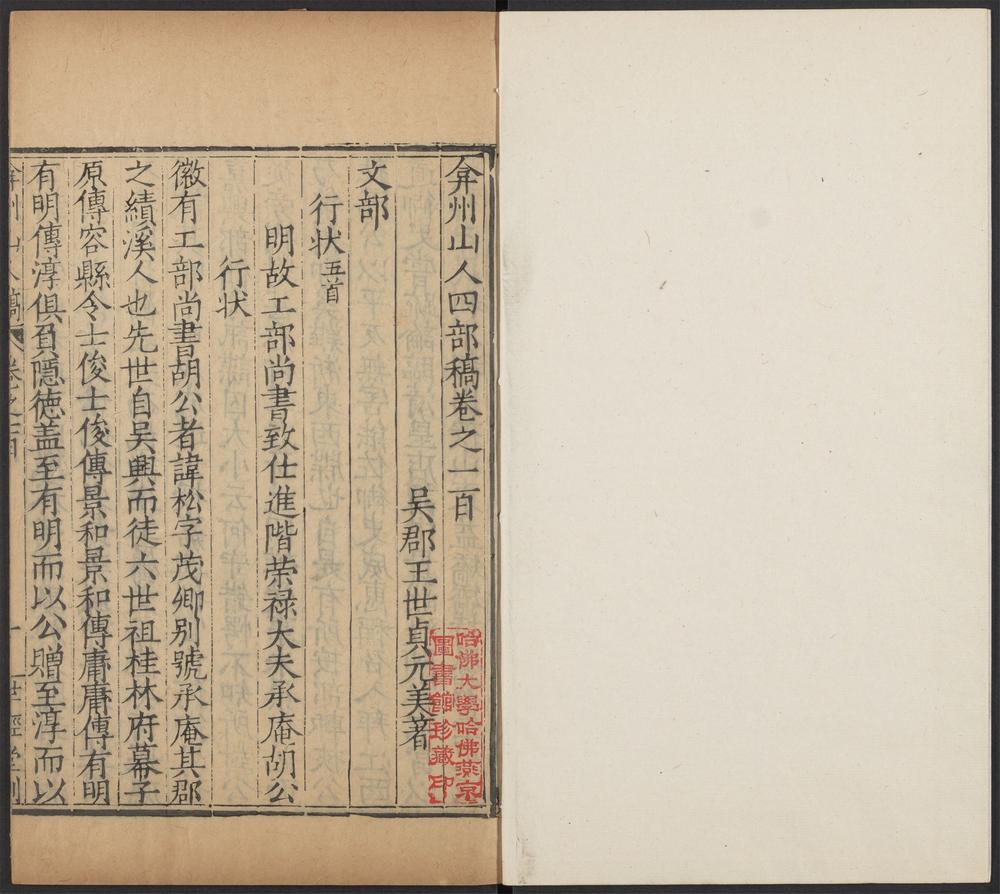 弇州山人四部稿卷之一百
吴郡王世貞元美著
文部
行状五首
明故工部尚書致仕進階荣禄大夫承庵胡公
行状
徽有工部尚書胡公者諱松字茂卿别號承庵其郡
之績溪人也先世自吴興而徙六世祖桂林府幕子
原傳容縣令士俊士俊傳景和景和傳庸庸傳有明
有明傳淳俱負隱徳盖至有明而以公贈至淳而以
弇州山人稿
卷之一百
一
世經堂刻
哈佛大學哈佛燕京
圖書館珍藏印